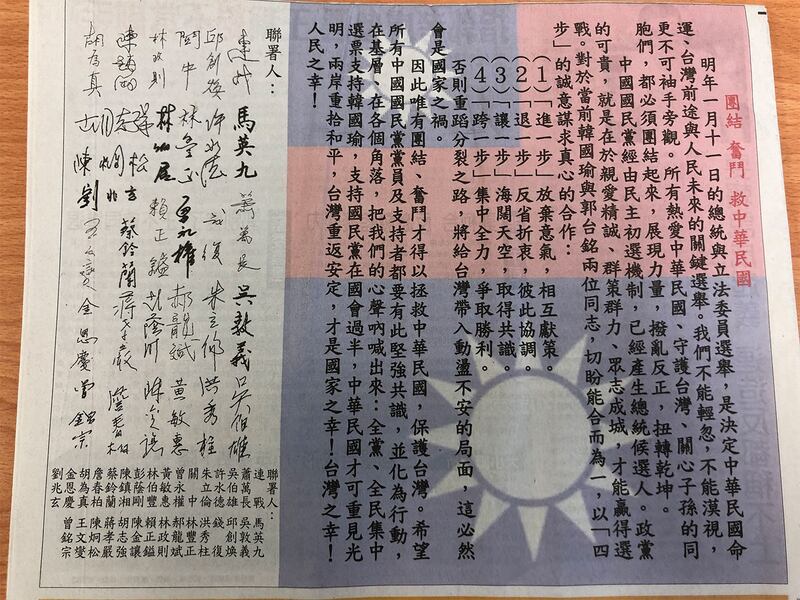 團結 奮鬥 救中華民國
明年一月十一日的總統與立法委員選舉,是決定中華民國命
運、台灣前途與人民未來的關鍵選舉。我們不能輕忽,不能漠視,
更不可袖手旁觀。所有熱愛中華民國、守護台灣、關心子孫的同
胞們,都必須團結起來,展現力量,撥亂反正,扭轉乾坤。
中國國民黨經由民主初選機制,已經產生總統候選人。政黨
的可貴,就是在於親愛精誠、群策群力、眾志成城,才能贏得選
戰。對於當前韓國瑜與郭台銘兩位同志,切盼能合而為一,以「四
步」的誠意謀求真心的合作:
(1)「進一步」放棄意氣,相互獻策。
(2)「退一步」反省折衷,彼此協調。
(3)「讓一步」海闊天空,取得共識。
(4)「跨一步」集中全力,爭取勝利。
否則重蹈分裂之路,將給台灣帶入動盪不安的局面,這必然
會是國家之禍。
因此唯有團結、奮鬥才得以拯救中華民國,保護台灣。希望
所有中國國民黨黨員及支持者都要有此堅強共識,並化為行動,
在基層、在各個角落,把我們的心聲吶喊出來:全黨、全民集中
選票支持韓國瑜,支持國民黨在國會過半,中華民國才可重見光
明,兩岸重拾和平,台灣重返安定,才是國家之幸!台灣之幸!
人民之幸!
聯署人:
連戰 馬英九 蕭萬長 吳敦義 吳伯雄
邱創煥 許水德 錢復 朱立倫 洪秀柱
關中 林豐正 曾永權 郝龍斌 黃敏惠
林政則 林伯豐 賴正鎰 彭蔭剛 陳金讓
陳鎮湘 胡志強 蔡鈴蘭 蔣孝嚴 詹春柏
胡為真 陳炯松 劉兆玄 王文燮 金恩慶 曾銘宗
聯署人:
連 戰 馬英九
蕭萬長 吳敦義
吳伯雄 邱創煥
許水德 錢 復
朱立倫 洪秀柱
關 中 林豐正
曾永權 郝龍斌
黃敏惠 林政則
林伯豐 賴正鎰
彭蔭剛 陳金讓
陳鎮湘 胡志強
蔡鈴蘭 蔣孝嚴
詹春柏 陳炯松
胡為真 王文燮
金恩慶 曾銘宗
劉兆玄